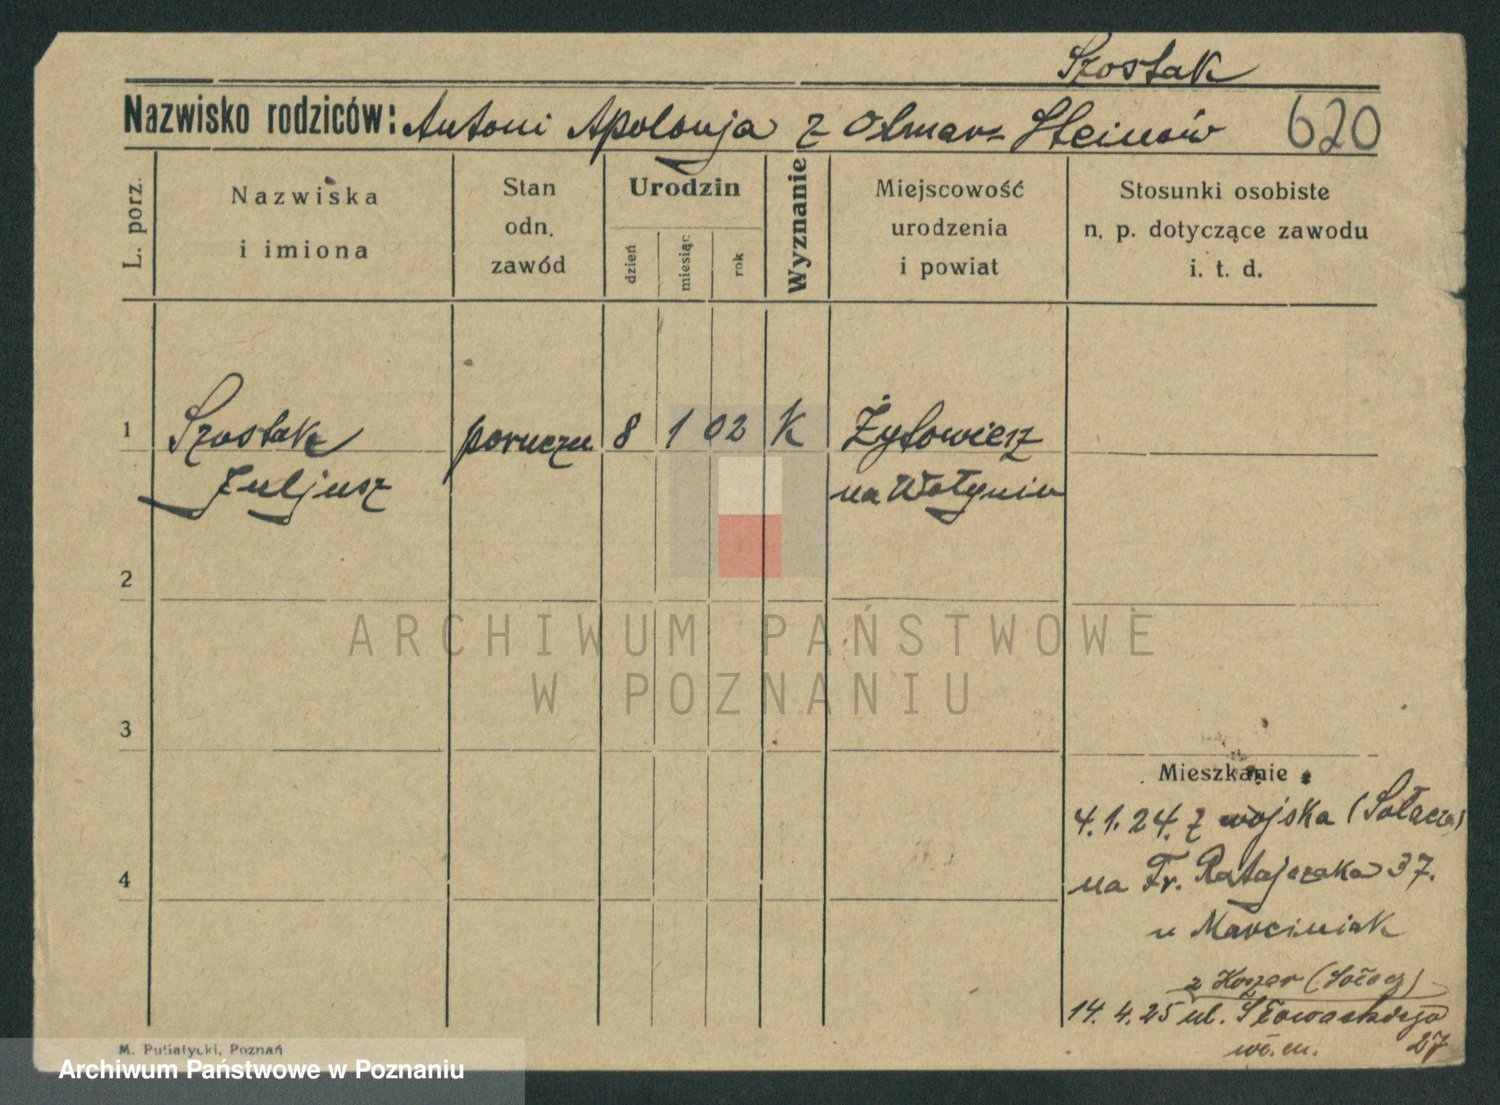 Szostak
Nazwisko rodziców: Antoni Apolonja z Olmar- Steinów 620
L. porz.
Nazwiska
i imiona
Stan
odn.
zawód
Urodzin
dzień
miesiąc
rok
Wyznanie
Miejscowość
urodzenia
i powiat
Stosunki osobiste
n. p. dotyczące zawodu
i. t. d.
1 Szostak poruczn. 8 1 02 K Żytowiesz
Juljusz na Wołyniu
2
ARCHIWUM PAŃSTWOWE
W POZNANIU
3
Mieszkanie
4.1.24. z wojska (Sołacz)
4
na Fr. Ratajczaka 37.
u Marciniak
z Koszar (Sołacz)
14.4.25 ul. Słowackiego
27
M. Putiatycki, Poznań
Archiwum Państwowe w Poznaniu